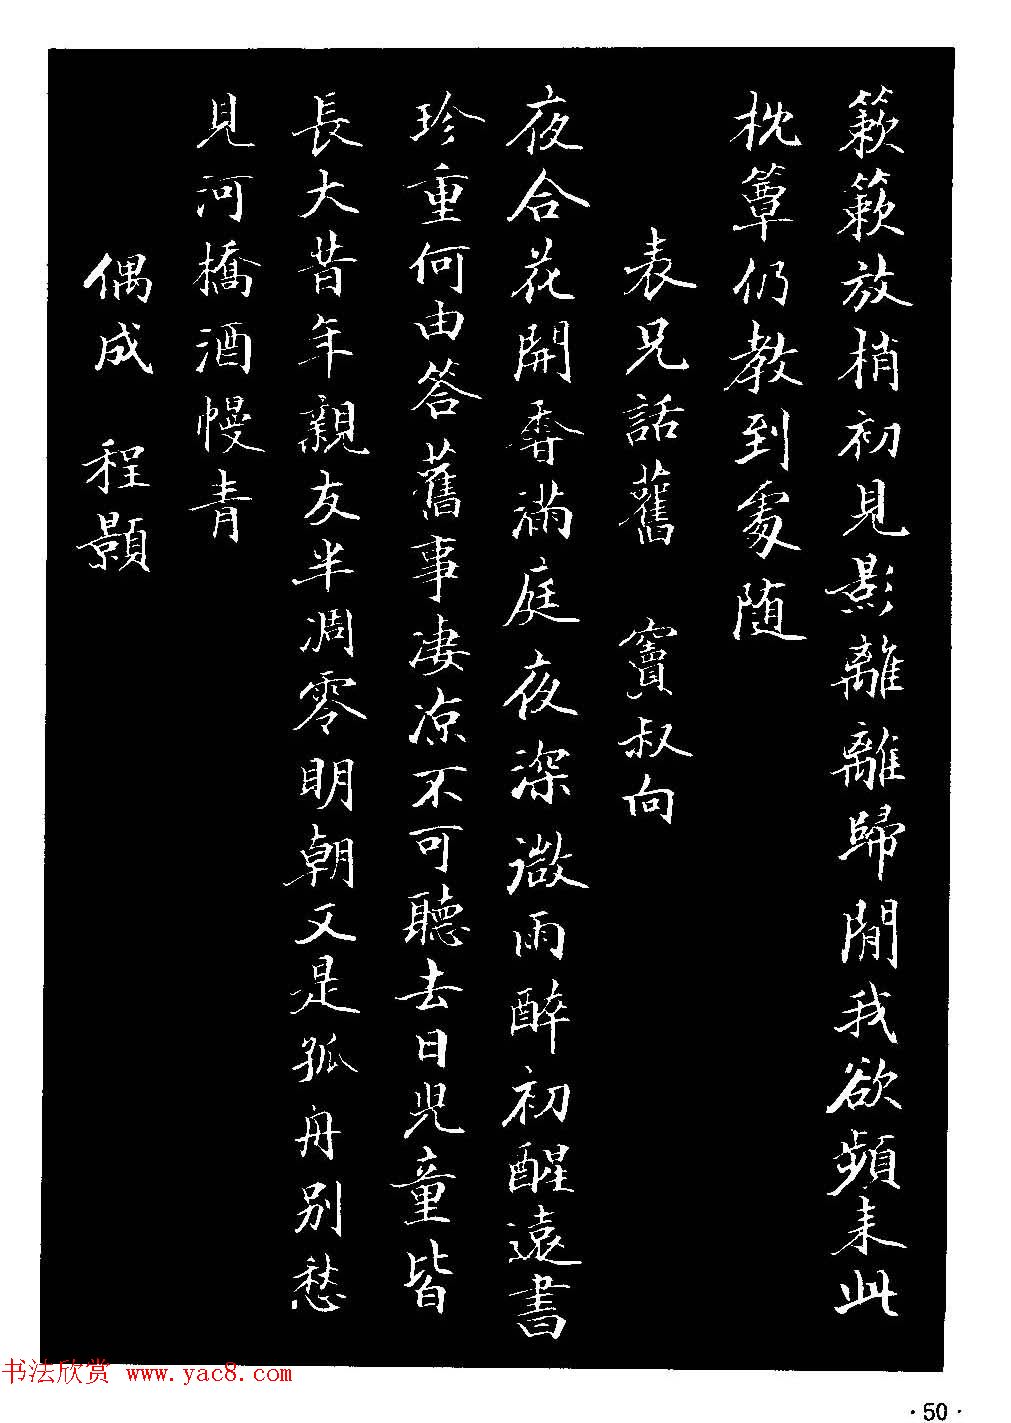 簌簌放梢初見影離離歸閒我欲頻来此
枕簟仍教到處随
表兄話舊 竇叔向
夜合花開香滿庭夜深微雨醉初醒遠書
珍重何由答舊事凄涼不可聽去日兒童皆
長大昔年親友半凋零明朝又是孤舟別愁
見河橋酒幔青
偶成 程顥
书法欣赏 www.yac8.com
·50·